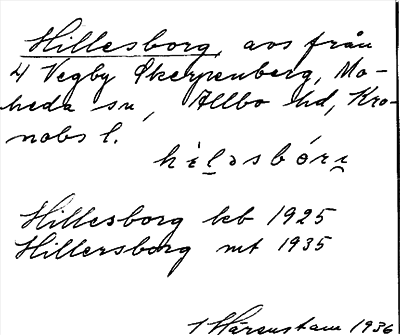 Hillesborg, avs från
4 Vegby Skerpenberg, Mo-
heda sn, Allbo hd, Kro-
nobs l.
Hillesborg kb 1925
Hillersborg mt 1935
1936